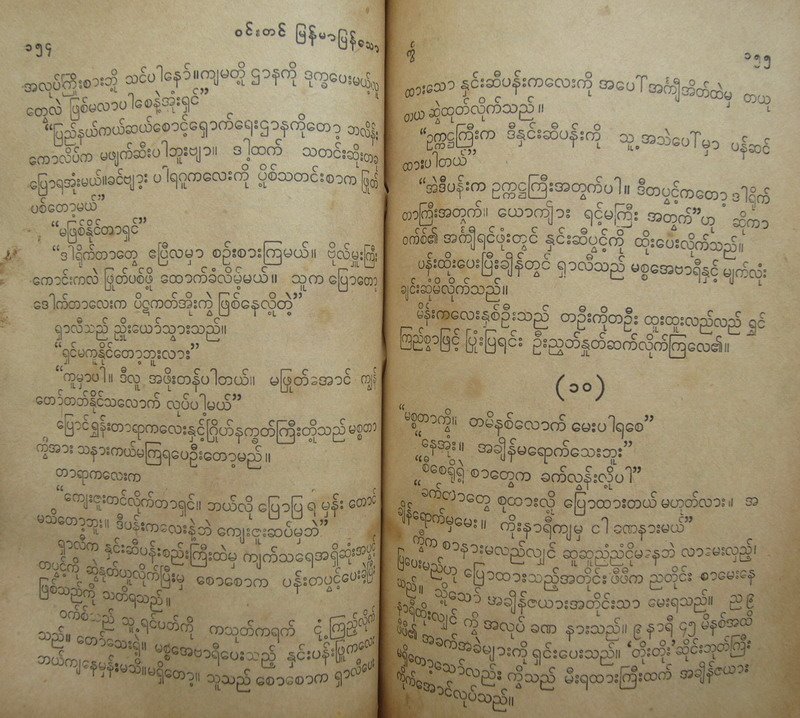 ၁၅၄
ဝင်းတင် မြန်မာပြန်သော
အလုပ်ကြိုးစားဘို့ သင်ပါနော်။ ကျမတို့ ဌာနကို ဒုက္ခပေးမယ့်လူ
တွေလဲ ဖြစ်မလာပါစေနဲ့အုံးရှင်”
“ပြည်နယ်ကယ်ဆယ်စောင့်ရှောက်ရေးဌာနကိုတော့ ဘလိန်း
ကောလိပ်က မဖျက်ဆီးပါဘူးဗျာ။ ဒါ့ထက် သတင်းဆိုးတခု
ပြောရအုံးမယ်။ ခင်ဗျား ပါရဂူကလေးကို ပို့စ်သတင်းစာက ဖြုတ်
ပစ်တော့မယ်”
“မဖြစ်နိုင်တာရှင်”
“ဒါရိုက်တာတွေ ဧပြီလမှာ စဉ်းစားကြမယ်။ ဗိုလ်မှူးကြီး
ကောင်းကလဲ ဖြုတ်ပစ်ဖို့ ထောက်ခံလိမ့်မယ်။ သူက ပြောတော့
ဒေါက်တာလေးက ပိဋကတ်အိုးကွဲ ဖြစ်နေလို့တဲ့”
ရှာလီသည် ညှိုးယော်သွားသည်။
“ရှင်မကူနိုင်တော့ဘူးလား”
“ကူမှာပါ။ ဒီလူ အဖိုးတန်ပါတယ်။ မဖြုတ်အောင် ကျွန်
တော်တတ်နိုင်သလောက် လုပ်ပါ့မယ်”
ပြောင်ရွှန်းတာရာကလေးနှင့်ဂြိုဟ်နက္ခတ်ကြီးတို့သည် မစ္စတာ
ကွီအား သနားကယ်မကြရပေဦးတော့မည်။
တာရာကလေးက
“ကျေးဇူးတင်လိုက်တာရှင်။ ဘယ်လို ပြောပြ ရ မှန်း တောင်
မသိတော့ဘူး။ ဒီပန်းကလေးနဲ့ဘဲ ကျေးဇူးဆပ်မှဘဲ”
ရှာလီက နှင်းဆီပန်းစည်းကြီးထဲမှ ကျက်သရေအရှိဆုံးအပွင့်
တပွင့်ကို ဆွဲနုတ်ယူလိုက်ပြီးမှ စောစောက ပန်းတပွင့်ပေးခဲ့ပြီး
ဖြစ်သည်ကို သတိရသည်။
ဝက်စ်သည် သူ့ရင်ပတ်ကို ကသုတ်ကရက် ငုံ့ကြည့်လိုက်
သည်။ တော်သေးရဲ့။ မစ္စအေဗာရီပေးသည့် နှင်းပန်းဖြူကလေး
ဘယ်ကျနေမှန်းမသိ။ မရှိတော့။ သူသည် စောစောက ရှာလီပေး
ကွီ
၁၅၅
ထားသော နှင်းဆီပန်းကလေးကို အပေါ်အင်္ကျီအိတ်ထဲမှ တယု
တယ ဆွဲထုတ်လိုက်သည်။
“ဥက္ကဋ္ဌကြီးက ဒီနှင်းဆီပန်းကို သူ့အသဲပေါ်မှာ ပန်ဆင်
ထားပါတယ်”
“အဲဒီပန်းက ဥက္ကဋ္ဌကြီးအတွက်ပါ။ ဒီတပွင့်ကတော့ ဒါရိုက်
တာကြီးအတွက်။ ယောက်ျား ရင့်မကြီး အတွက်”ဟု ဆိုကာ
ဝက်စ်၏ အင်္ကျီရင်ဖုံးတွင် နှင်းဆီပွင့်ကို ထိုးပေးလိုက်သည်။
ပန်းထိုးပေးပြီးချိန်တွင် ရှာလီသည် မစ္စအေဗာရီနှင့် မျက်လုံး
ချင်းဆုံမိလိုက်သည်။
မိန်းကလေးနှစ်ဦးသည် တဦးကိုတဦး ထူးထူးလည်လည် ရွှင်
ကြည်စွာဖြင့် ပြုံးပြရင်း ဦးညွှတ်နှုတ်ဆက်လိုက်ကြလေ၏။
(၁၀)
“မစ္စတာကွီ။ တမိနစ်လောက် မေးပါရစေ”
“နေအုံး။ အချိန်မရောက်သေးဘူး”
“စီစေရို့ရဲ့ စာတွေက ခက်လွန်းလို့ပါ”
“ခက်တာတွေ စုထားလို့ ပြောထားတယ် မဟုတ်လား။ အ
ချိန်ရောက်မှမေး။ ကိုးနာရီကျမှ ငါ ခဏနားမယ်”
ကွီက စာနားမလည်လျှင် သူဆူညံညံငိုမနေနဲ့ လာမေးလှည့်၊
ပြပေးမည်ဟု ပြောထားသည့်အတိုင်း ဖီဖီက ညတိုင်း စာမေးနေ
သည်။ သို့သော် အချိန်ဇယားအတိုင်းသာ မေးရသည်။ ည ၉
နာရီထိုးလျှင် ကွီ အလုပ် ခဏ နားသည်။ ၉ နာရီ ၄၅ မိနစ်အထိ
ဖီဖီ၏ အခက်အခဲများကို ရှင်းပေးသည်။ ‘တိုးတိုး’ဆိုင်းဘုတ်ကြီး
မရှိတော့သော်လည်း ကွီသည် မီးရထားကြီးထက် အချိန်ဇယား
ကိုက်အောင်လုပ်သည်။